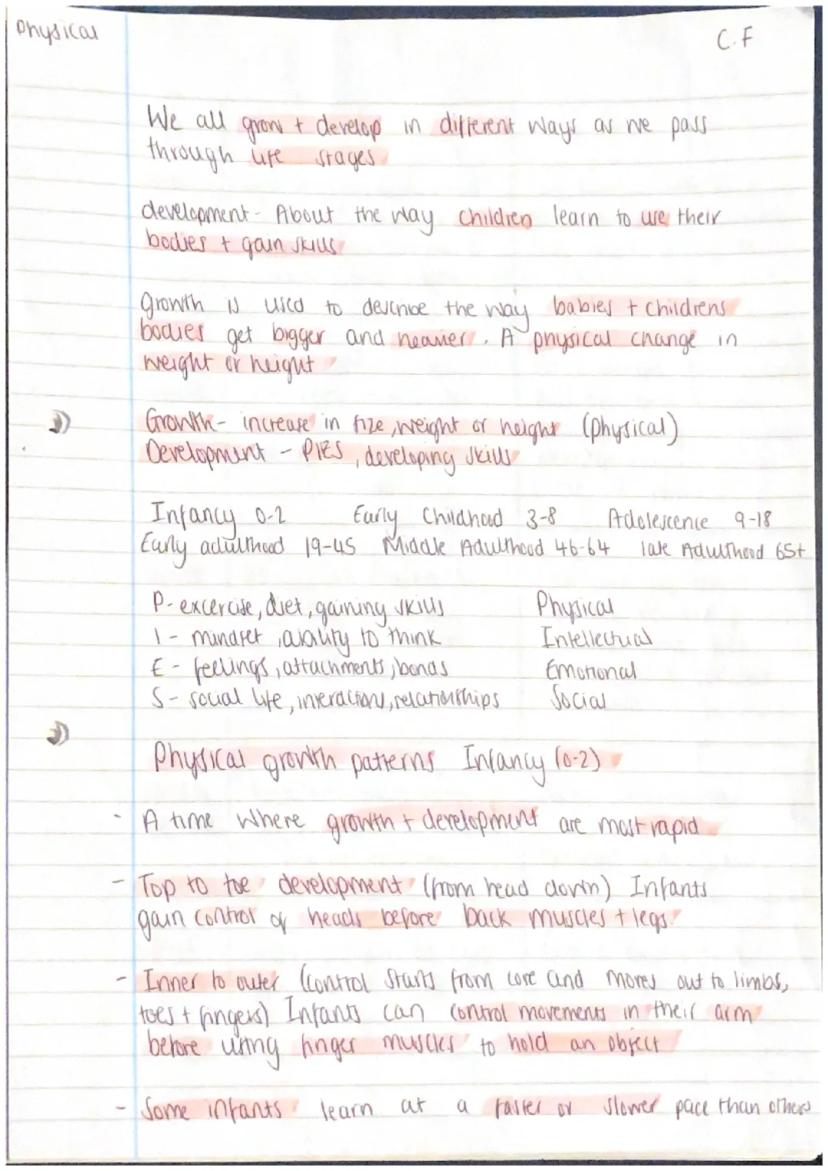 Physical
C.F
We all grow + develop in different ways as we pass
through life stages
development - About the way children learn to use their
bodies + gain skills
growth is used to describe the way babies + childrens
bodies get bigger and heavier. A physical change in
weight or height
Growth - increase in size, weight or height (physical)
Development - PIES, developing skills
Infancy 0-2 Early Childhood 3-8 Adolescence 9-18
Early adulthood 19-45 Middle Adulthood 46-64 late Adulthood 65+
P - excercise, diet, gaining skills Physical
I - mindset, ability to think Intellectual
E - feelings, attachments, bonds Emotional
S - social life, interactions, relationships Social
Physical growth patterns Infancy (0-2)
- A time where growth + development are most rapid
- Top to toe development (from head down) Infants
gain control of heads before back muscles + legs.
- Inner to outer (control starts from core and moves out to limbs,
toes + fingers) Infants can control movements in their arm
before using finger muscles to hold an object
- Some infants learn at a faster or slower pace than others